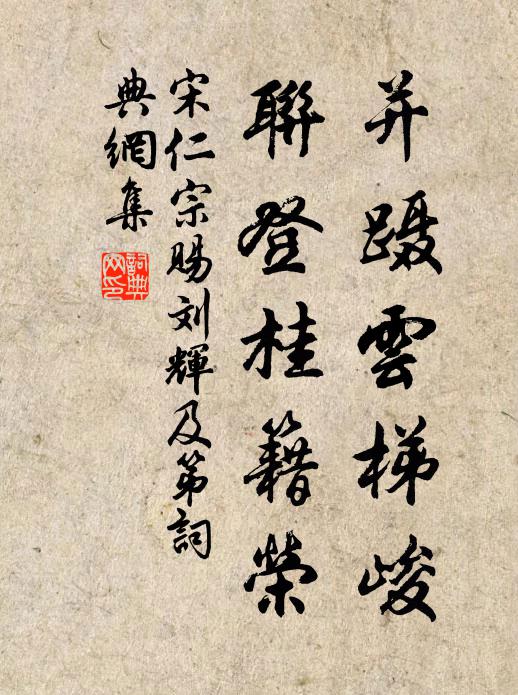 并蹑雲梯峻
聯登桂籍榮
宋仁宗賜刘輝及第詞
典網集
詞典
网印